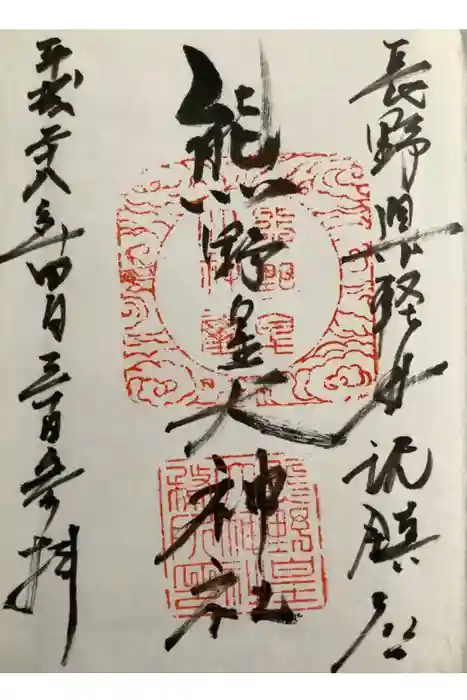 長野県軽井沢鎮座
熊野皇大神社
平成廿八年四月三日参拝